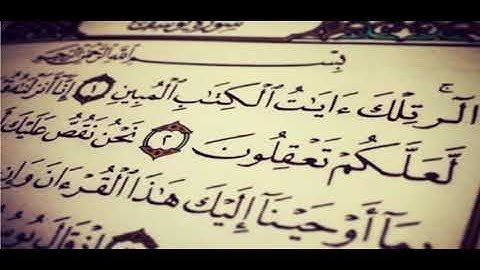 سورة يوسف
بسم الله الرحمن الرحيم
الٓرۚ تِلۡكَ ءَايَٰتُ ٱلۡكِتَٰبِ ٱلۡمُبِينِ ١ إِنَّآ أَنزَلۡنَٰهُ
لَّعَلَّكُمۡ تَعۡقِلُونَ ٢ نَحۡنُ نَقُصُّ عَلَيۡكَ
بِمَآ أَوۡحَيۡنَآ إِلَيۡكَ هَٰذَا ٱلۡقُرۡءَانَ وَإِن
إِذۡ قَالَ يُوسُفُ